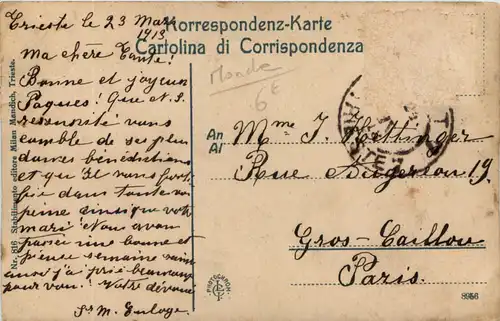 Trieste le 23 Mars
1913
Korrespondenz-Karte
Cartolina di Corrispondenza
Ma chère Tante!
Bonne et joyeuse
Pâques! Que N. S.
ressuscité vous
comble de ses plus
douces bénédictions
et qu'Il vous forti-
fie dans toute vos
peine ainsi que votre
mari! Nous avons
passé une bonne et
pieuse semaine sainte
j'ai prié beaucoup
pour vous! Votre dévouée
Sr M. Euloge.
6€
An
Al
Mme J. Hottinger
Rue 19.
Gros-Caillou
Paris.
Nr. 816 Stabilimento editore Milan Mandich, Trieste.
8956